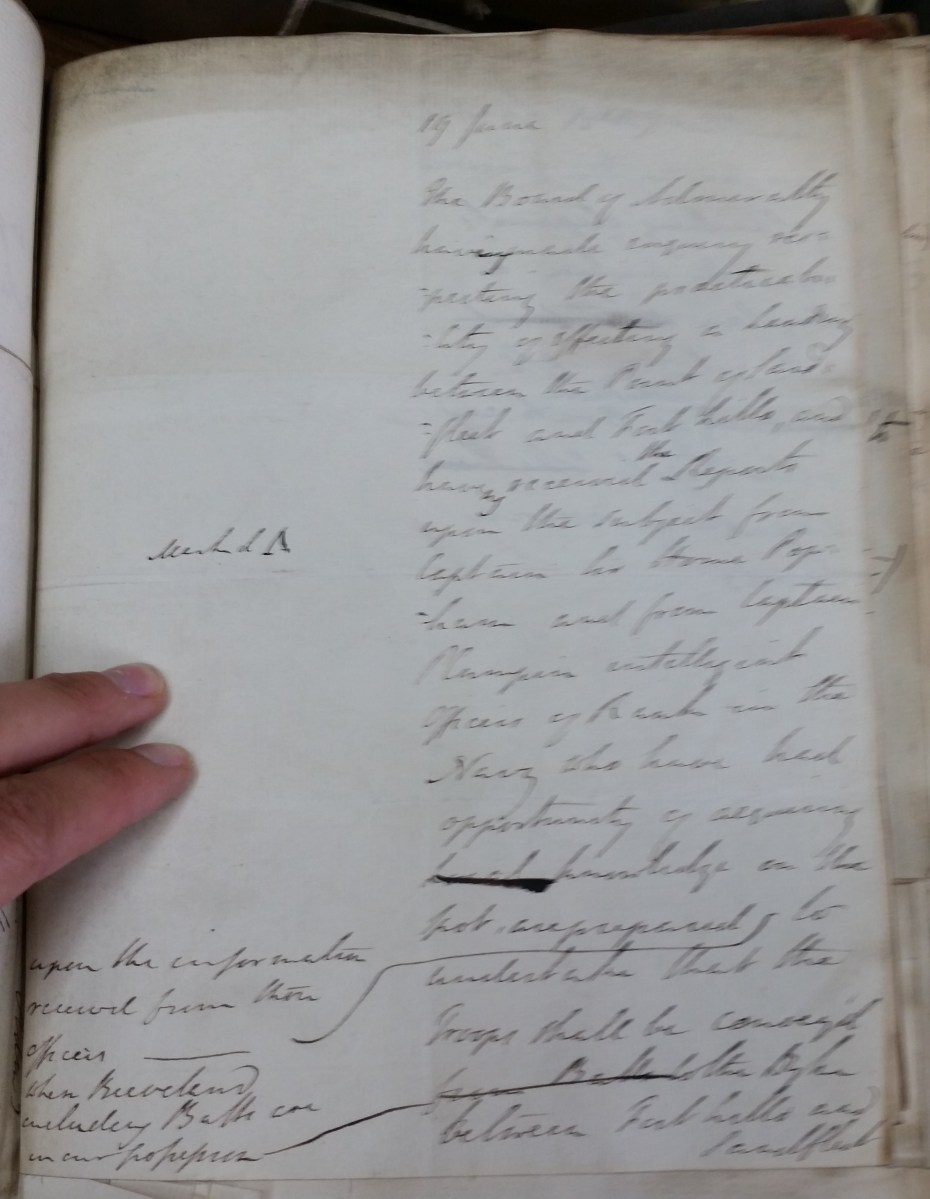 19 June
The Board of Admiralty
having made enquiry res=
=pecting the practicabi=
=lity of effecting a landing
between the Point of Sand=
=fleet and Fort Lillo, and
having received the Reports
upon the subject from
Captain Sir Home Pop=
=ham and from Captain
Plampin intelligent
Officers of Rank in the
Navy who have had
opportunity of acquiring
local knowledge on the
spot, are prepared to
undertake that the
Troops shall be conveyed
from Batts to the Dyke
between Fort Lillo and
Sandfleet
Marked A
upon the information
received from these
officers
when Beveland
including Batts are
in our possession